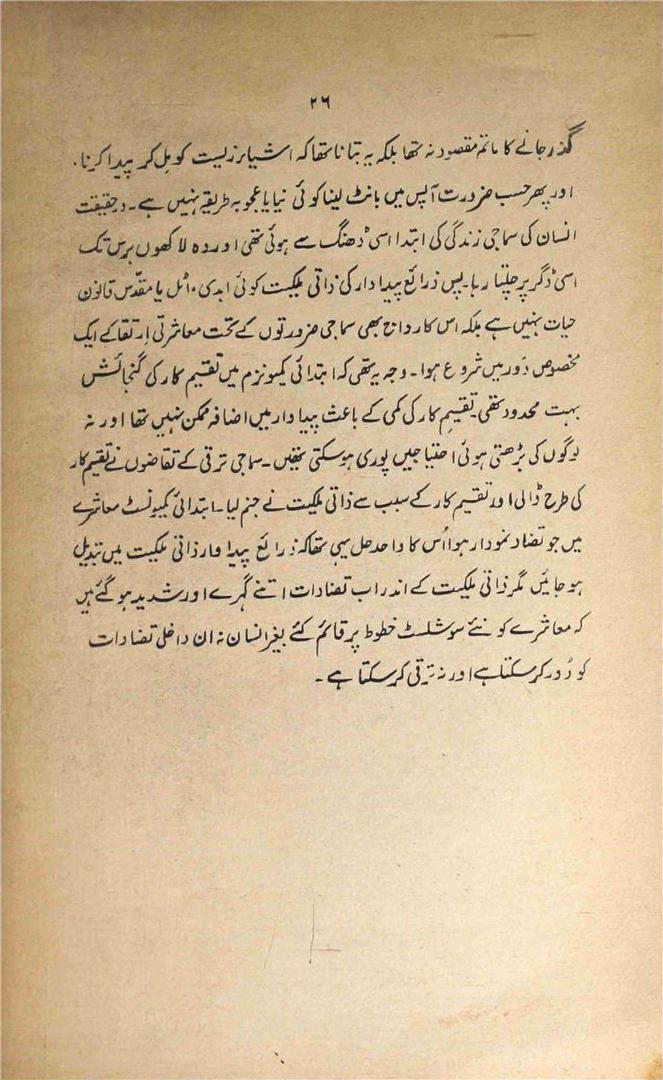 ۲۶
گذر جانے کا ماتم مقصود نہ تھا بلکہ یہ بتانا تھا کہ اشیاء زیست کو مل کر پیدا کرنا۔
اور پھر حسب ضرورت آپس میں بانٹ لینا کوئی نیا یا عجوبہ طریقہ نہیں ہے۔ درحقیقت
انسان کی سماجی زندگی کی ابتدا اسی ڈھنگ سے ہوئی تھی اور وہ لاکھوں برس تک
اسی ڈگر پر چلتا رہا۔ پس ذرائع پیداوار کی ذاتی ملکیت کوئی ابدی، اٹل یا مقدّس قانون
حیات نہیں ہے بلکہ اس کا رواج بھی سماجی ضرورتوں کے تحت معاشرتی اِرتقا کے ایک
مخصوص دَور میں شروع ہوا۔ وجہ یہ تھی کہ ابتدائی کمیونزم میں تقسیم کار کی گنجائش
بہت محدود تھی۔ تقسیمِ کار کی کمی کے باعث پیداوار میں اضافہ ممکن نہیں تھا اور نہ
لوگوں کی بڑھتی ہوئی احتیاجیں پوری ہو سکتی تھیں۔ سماجی ترقی کے تقاضوں نے تقسیم کار
کی طرح ڈالی اور تقسیم کار کے سبب سے ذاتی ملکیت نے جنم لیا۔ ابتدائی کمیونسٹ معاشرے
میں جو تضاد نمودار ہوا اُس کا واحد حل یہی تھا کہ ذرائع پیداوار ذاتی ملکیت میں تبدیل
ہو جائیں مگر ذاتی ملکیت کے اندر اب تضادات اتنے گہرے اور شدید ہو گئے ہیں
کہ معاشرے کو نئے سوشلسٹ خطوط پر قائم کئے بغیر انسان نہ ان داخلی تضادات
کو دُور کر سکتا ہے اور نہ ترقی کر سکتا ہے۔